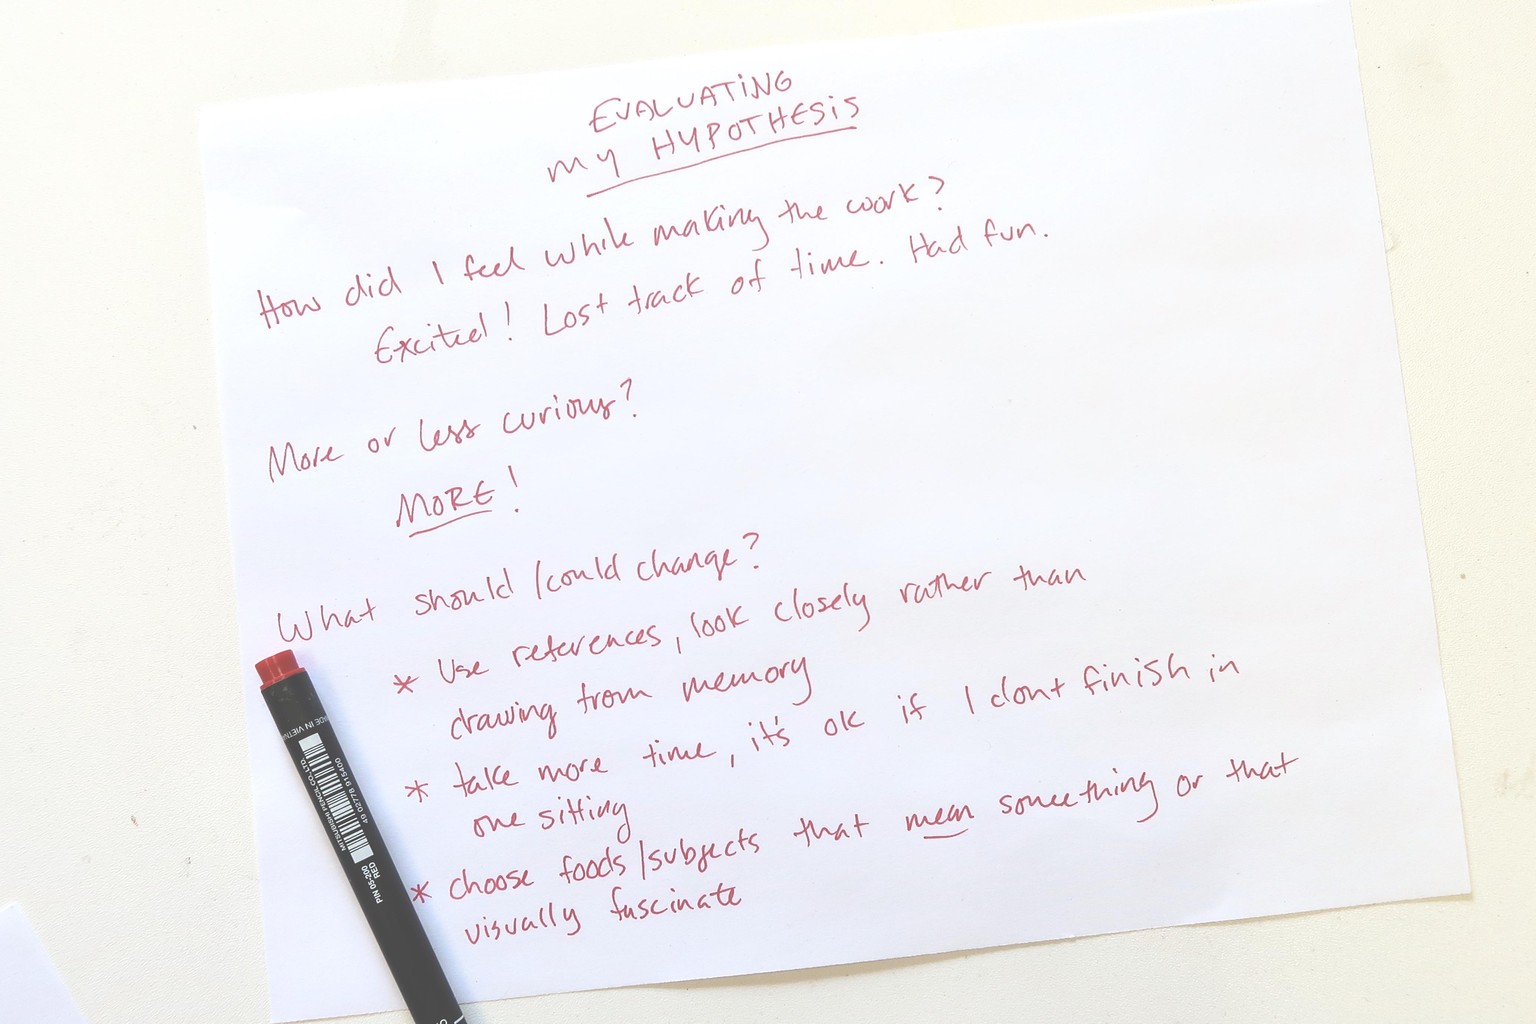 EVALUATING
MY HYPOTHESIS
How did I feel while making the work?
Excited! Lost track of time. Had fun.
More or less curious?
MORE!
What should/could change?
* Use references, look closely rather than
drawing from memory
* take more time, it's ok if I dont finish in
one sitting
* choose foods/subjects that mean something or that
visually fascinate
MADE IN VIETN
MITSUBISHI PENCIL CO., LTD.
49 02778 915400
PIN 05-200
RED